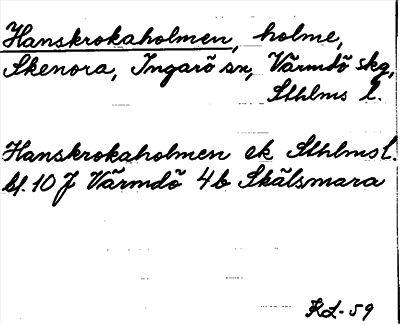 Hanskrokaholmen, holme,
Skenora, Ingarö sn, Värmdö skg,
Sthlms l.
Hanskrokaholmen ek Sthlms l.
bl. 10 J Värmdö 4b Skälsmara
RL-59